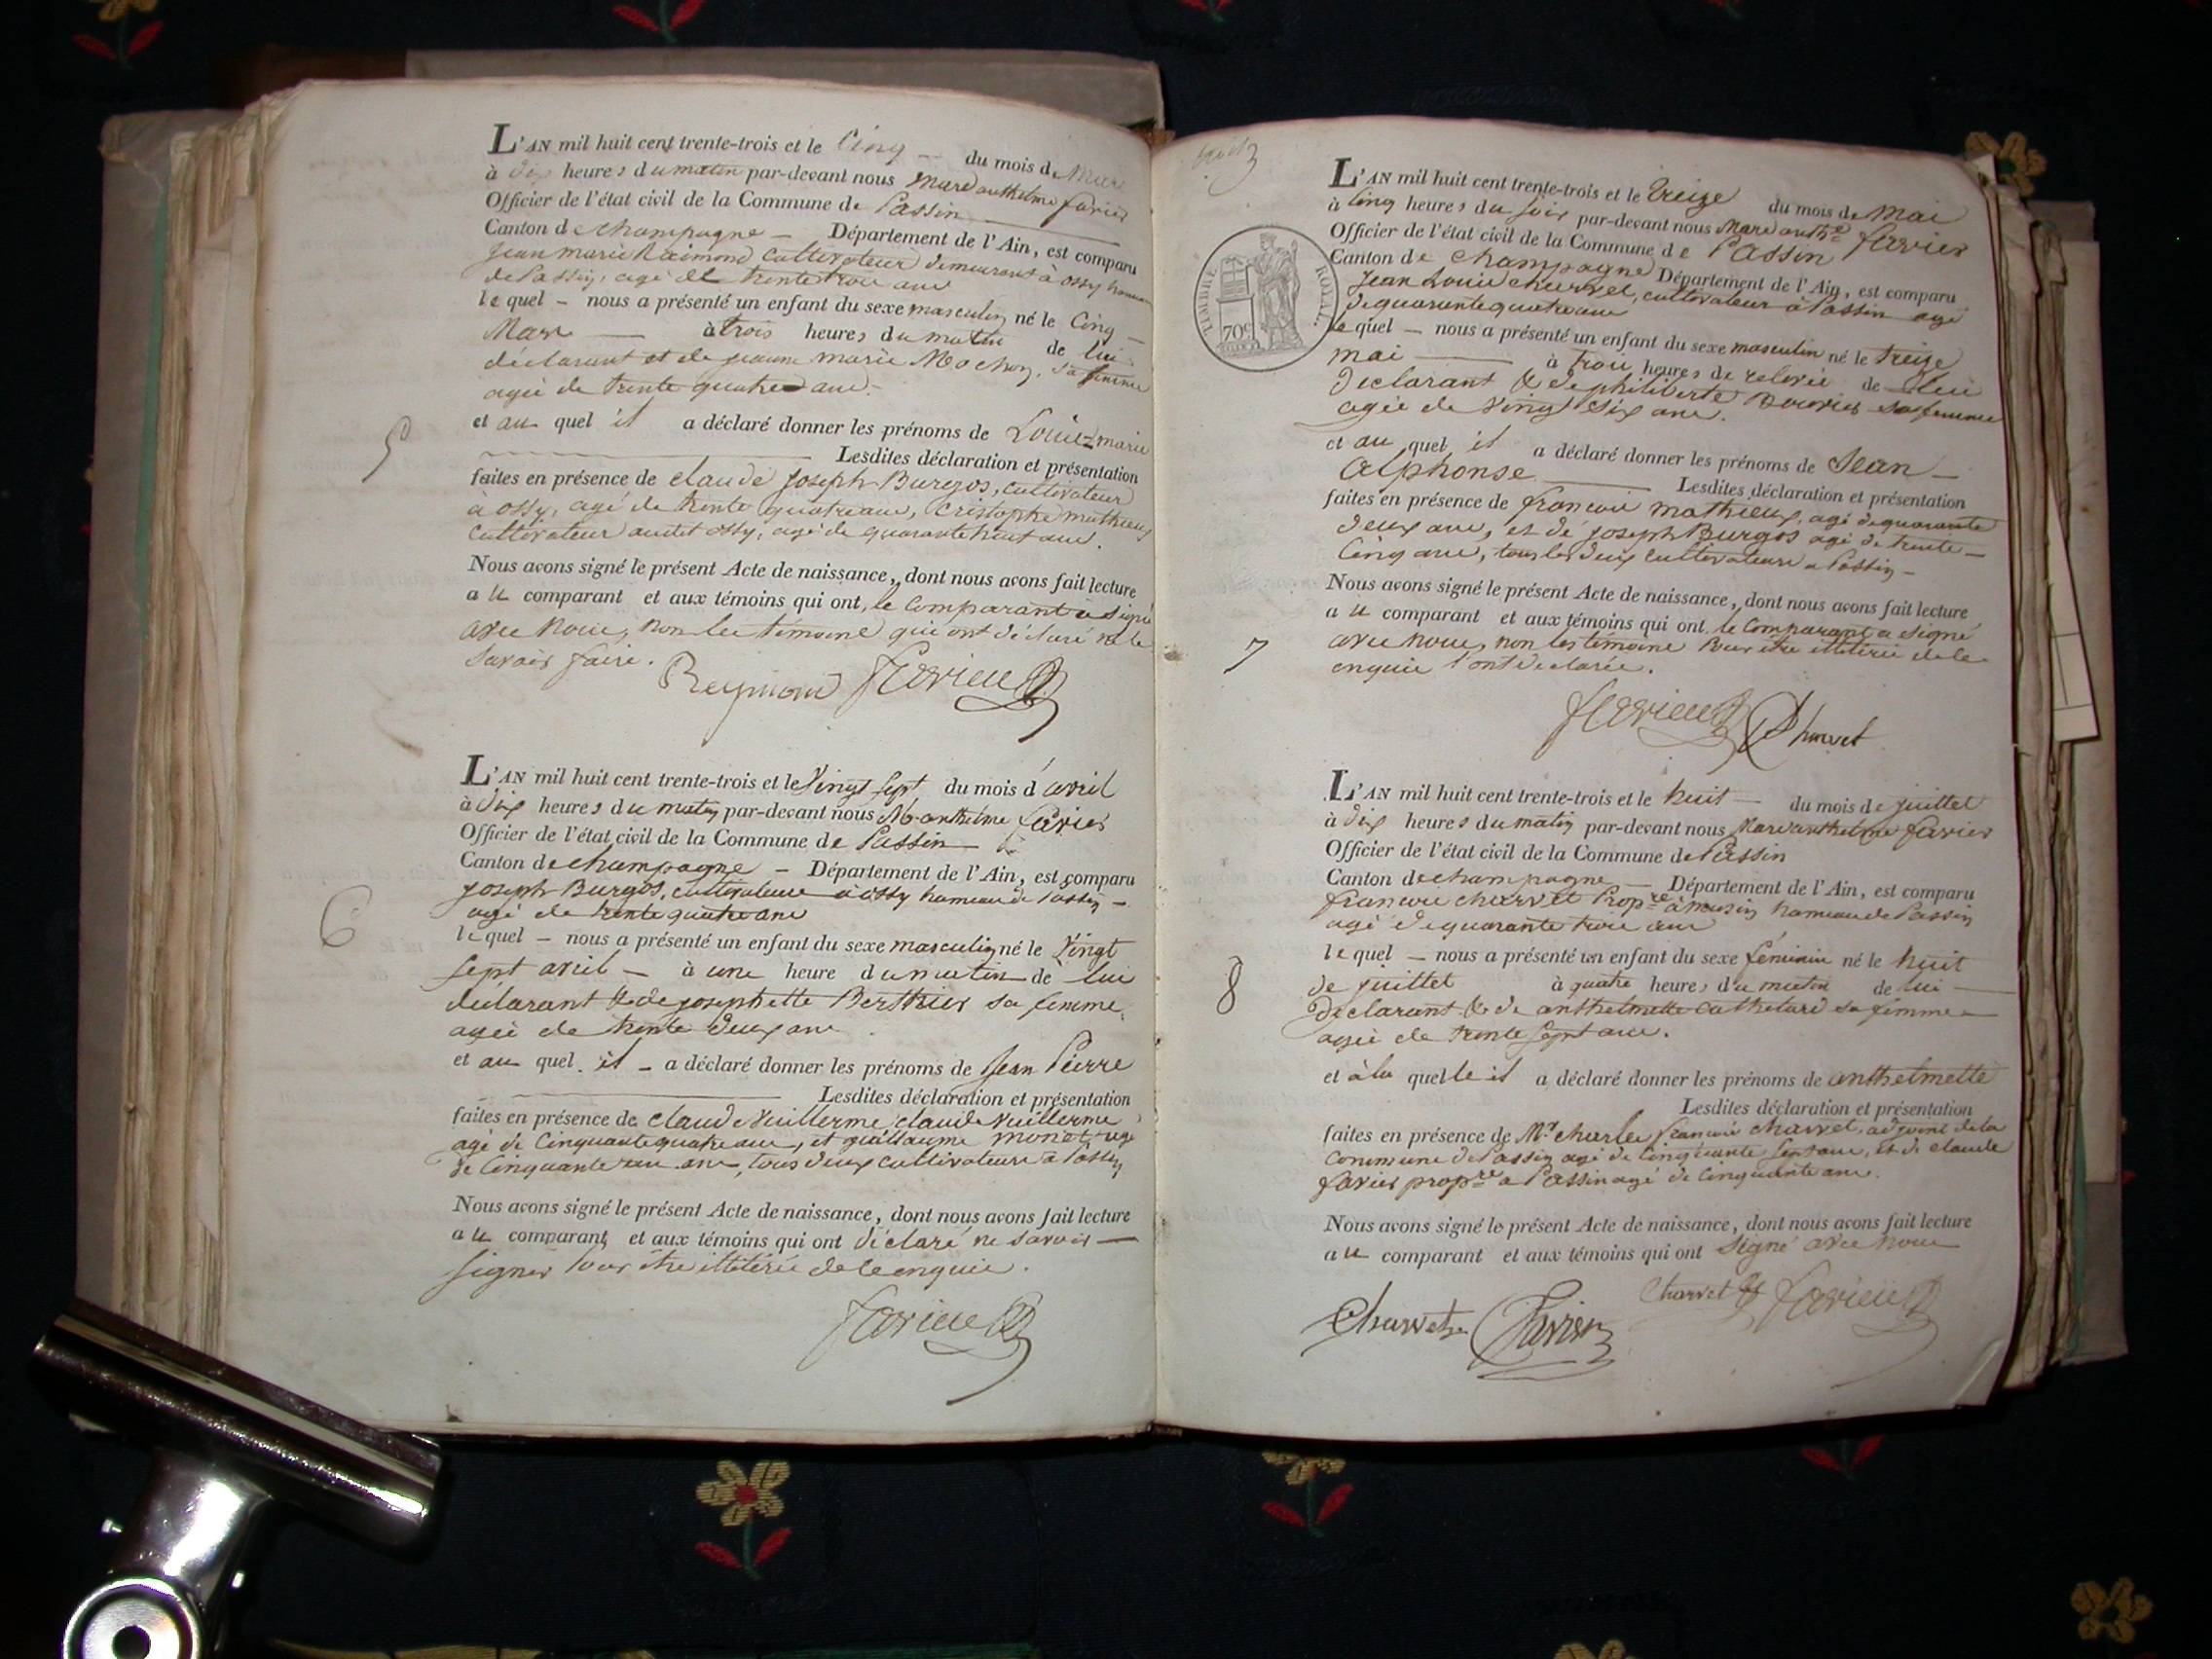 L'AN mil huit cent trente-trois et le Cinq du mois de Mars
à dix heures du matin par-devant nous Marc anthelme favier
Officier de l'état civil de la Commune de Passin
Canton de champagne Département de l'Ain, est comparu
Jean marie Raimond Cultivateur demeurant à ossy hameau
de Passin, agé de trente trois ans
le quel nous a présenté un enfant du sexe masculin né le Cinq
Mars à trois heures du matin de lui
déclarant et de jeanne marie Mochon, sa femme
agée de trente quatre ans
et au quel il a déclaré donner les prénoms de Louis marie
Lesdites déclaration et présentation
faites en présence de claude joseph Burgos, cultivateur
à ossy, agé de trente quatre ans, Cristophe mathieux
Cultivateur audit ossy, agé de quarante huit ans.
Nous avons signé le présent Acte de naissance, dont nous avons fait lecture
au comparant et aux témoins qui ont, le Comparant a signé
avec nous, non les témoins qui ont déclaré ne le
savoir faire.
Reymond favier
5
L'AN mil huit cent trente-trois et le Vingt sept du mois d'avril
à dix heures du matin par-devant nous M. anthelme favier
Officier de l'état civil de la Commune de Passin
Canton de champagne Département de l'Ain, est comparu
joseph Burgos, cultivateur à ossy hameau de Passin
agé de trente quatre ans
le quel nous a présenté un enfant du sexe masculin né le Vingt
sept avril à une heure du matin de lui
déclarant & de josephette Berthier sa femme,
agée de trente deux ans
et au quel il a déclaré donner les prénoms de Jean Pierre
Lesdites déclaration et présentation
faites en présence de claude Vuillerme claude Vuillerme
agé de Cinquante quatre ans, et guillaume monet, agé
de Cinquante un ans, tous deux cultivateurs à Passin
Nous avons signé le présent Acte de naissance, dont nous avons fait lecture
au comparant et aux témoins qui ont déclaré ne savoir
signer pour être illitérés de ce enquis.
favier
6
TIMBRE ROYAL
70c
L'AN mil huit cent trente-trois et le treize du mois de Mai
à Cinq heures du soir par-devant nous Marc anthe favier
Officier de l'état civil de la Commune de Passin
Canton de champagne Département de l'Ain, est comparu
Jean Louis charvet, cultivateur à Passin agé
de quarante quatre ans
le quel nous a présenté un enfant du sexe masculin né le treize
mai à trois heures de relevée de lui
déclarant & de philiberte Bouvier sa femme
agée de vingt six ans.
et au quel il a déclaré donner les prénoms de Jean
Alphonse Lesdites déclaration et présentation
faites en présence de françois mathieux, agé de quarante
deux ans, et de joseph Burgos agé de trente
Cinq ans, tous les deux cultivateurs à Passin
Nous avons signé le présent Acte de naissance, dont nous avons fait lecture
au comparant et aux témoins qui ont le Comparant a signé
avec nous, non les témoins pour être illitérés de ce
enquis l'ont déclarés.
favier Charvet
7
L'AN mil huit cent trente-trois et le huit du mois de juillet
à dix heures du matin par-devant nous Marc anthelme favier
Officier de l'état civil de la Commune de Passin
Canton de champagne Département de l'Ain, est comparu
françois charvet Propre à musin hameau de Passin
agé de quarante trois ans
le quel nous a présenté un enfant du sexe féminin né le huit
de juillet à quatre heures du matin de lui
déclarant & de anthelmette cathelard sa femme
agée de trente sept ans.
et à la quelle il a déclaré donner les prénoms de anthelmette
Lesdites déclaration et présentation
faites en présence de Mr charles françois charvet, adjoint de la
commune de Passin agé de Cinquante sept ans, et de claude
favier propre à Passin agé de Cinquante ans.
Nous avons signé le présent Acte de naissance, dont nous avons fait lecture
au comparant et aux témoins qui ont signé avec nous
Charvet favier
Charvet favier
8